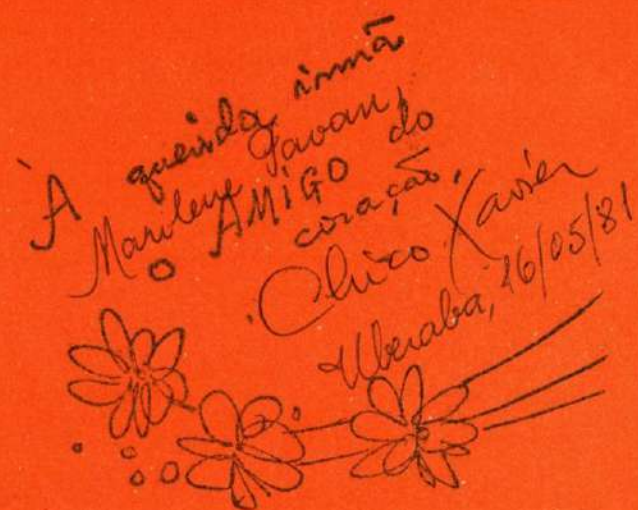 À querida irmã
Marilene Pavan,
o AMIGO do
coração,
Chico Xavier
Uberaba, 16/05/81